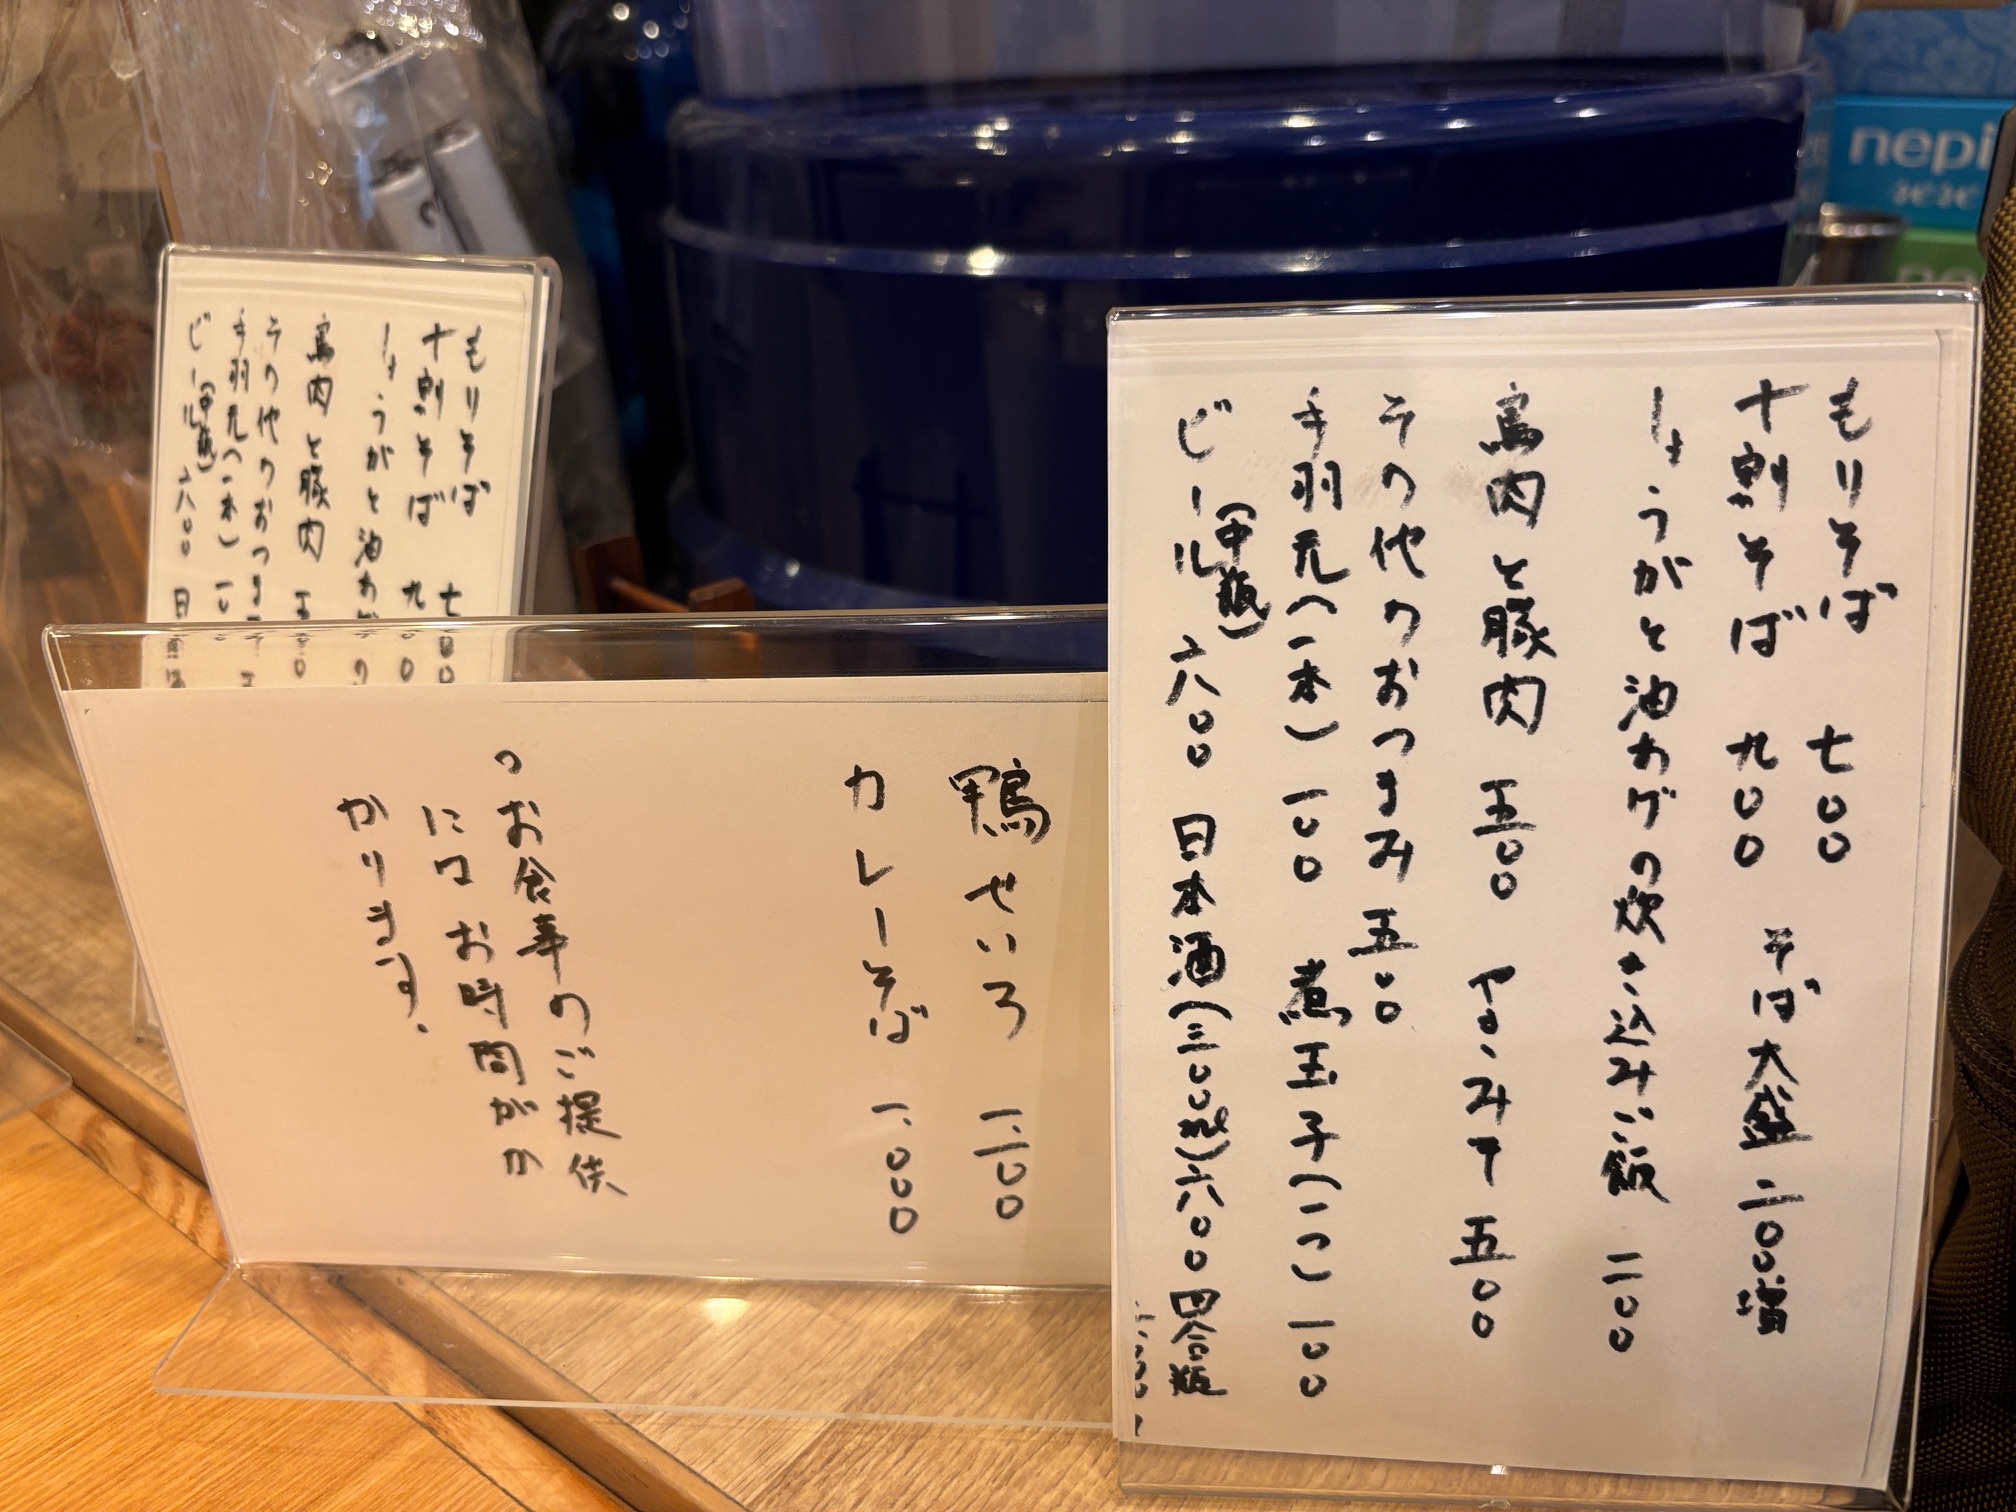 もりそば 七〇〇
十割そば 九〇〇 そば大盛 二〇〇増
しょうがと油あげの炊き込みご飯 二〇〇
鳥肉と豚肉 五〇〇 やきみそ 五〇〇
その他のおつまみ 五〇〇
手羽元(一本) 一〇〇 煮玉子(一つ) 一〇〇
ビール(中瓶) 六〇〇 日本酒(三〇〇ml) 六〇〇 四合瓶
鴨せいろ 一、二〇〇
カレーそば 一、〇〇〇
○お食事のご提供
にはお時間がか
かります。
もりそば 七〇〇
十割そば 九〇〇
しょうがと油あげの
鳥肉と豚肉 五〇〇
その他のおつまみ
手羽元(一本) 一〇
ビール(中瓶) 六〇〇 日本酒
nepi